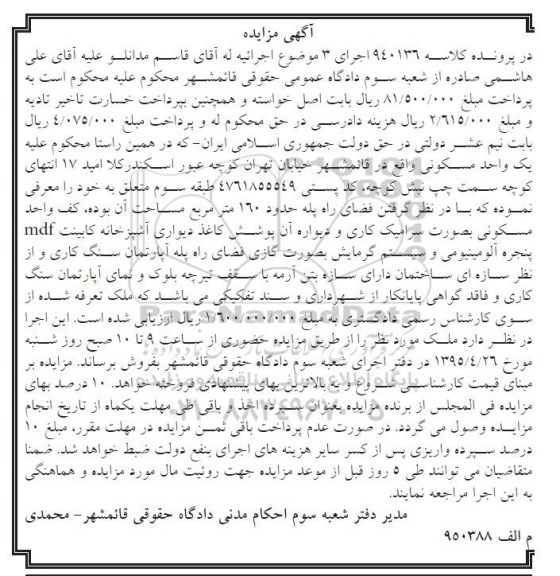 آگهی مزایده
در پرونده کلاسه ۹۴۰۱۳۶ اجرای ۳ موضوع اجرائیه له آقای قاسم مدانلو علیه آقای علی
هاشمی صادره از شعبه سوم دادگاه عمومی حقوقی قائمشهر محکوم علیه محکوم است به
پرداخت مبلغ ۸۱/۵۰۰/۰۰۰ ریال بابت اصل خواسته و همچنین بپرداخت خسارت تاخیر تادیه
و مبلغ ۲/۶۱۵/۰۰۰ ریال هزینه دادرسی در حق محکوم له و پرداخت مبلغ ۴/۰۷۵/۰۰۰ ریال
بابت نیم عشر دولتی در حق دولت جمهوری اسلامی ایران- که در همین راستا محکوم علیه
یک واحد مسکونی واقع در قائمشهر خیابان تهران کوچه عبور اسکندرکلا امید ۱۷ انتهای
کوچه سمت چپ نبش کوچه کد پستی ۴۷۶۱۸۵۵۵۴۹ طبقه سوم متعلق به خود را معرفی
نموده که با در نظر گرفتن فضای راه پله حدود ۱۶۰ متر مربع مساحت آن بوده، کف واحد
مسکونی بصورت سرامیک کاری و دیواره آن پوشش کاغذ دیواری آشپزخانه کابینت mdf
پنجره آلومینیومی و سیستم گرمایش بصورت گازی فضای راه پله آپارتمان سنگ کاری و از
نظر سازه ای ساختمان دارای سازه بتن آرمه با سقف تیرچه بلوک و نمای آپارتمان سنگ
کاری و فاقد گواهی پایانکار از شهرداری و سند تفکیکی می باشد که ملک تعرفه شده از
سوی کارشناس رسمی دادگستری به مبلغ ۱/۶۰۰/۰۰۰/۰۰۰ ریال ارزیابی شده است. این اجرا
در نظر دارد ملک مورد نظر را از طریق مزایده حضوری از ساعت ۹ تا ۱۰ صبح روز شنبه
مورخ ۱۳۹۵/۴/۲۶ در دفتر اجرای شعبه سوم دادگاه حقوقی قائمشهر بفروش برساند. مزایده بر
مبنای قیمت کارشناسی شروع و به بالاترین بهای پیشنهادی فروخته خواهد. ۱۰ درصد بهای
مزایده فی المجلس از برنده مزایده بعنوان سپرده اخذ و باقی طی مهلت یکماه از تاریخ انجام
مزایده وصول می گردد. در صورت عدم پرداخت باقی ثمن مزایده در مهلت مقرر، مبلغ ۱۰
درصد سپرده واریزی پس از کسر سایر هزینه های اجرای بنفع دولت ضبط خواهد شد. ضمنا
متقاضیان می توانند طی ۵ روز قبل از موعد مزایده جهت روئیت مال مورد مزایده و هماهنگی
به این اجرا مراجعه نمایند.
مدیر دفتر شعبه سوم احکام مدنی دادگاه حقوقی قائمشهر- محمدی
م الف ۹۵۰۳۸۸